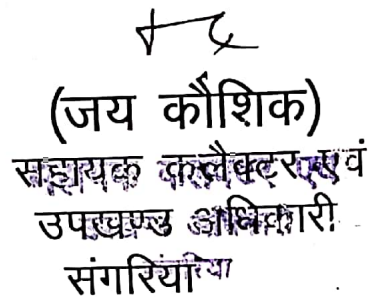 (जय कौशिक)
सहायक कलैक्टर एवं
उपखण्ड अधिकारी
संगरिया